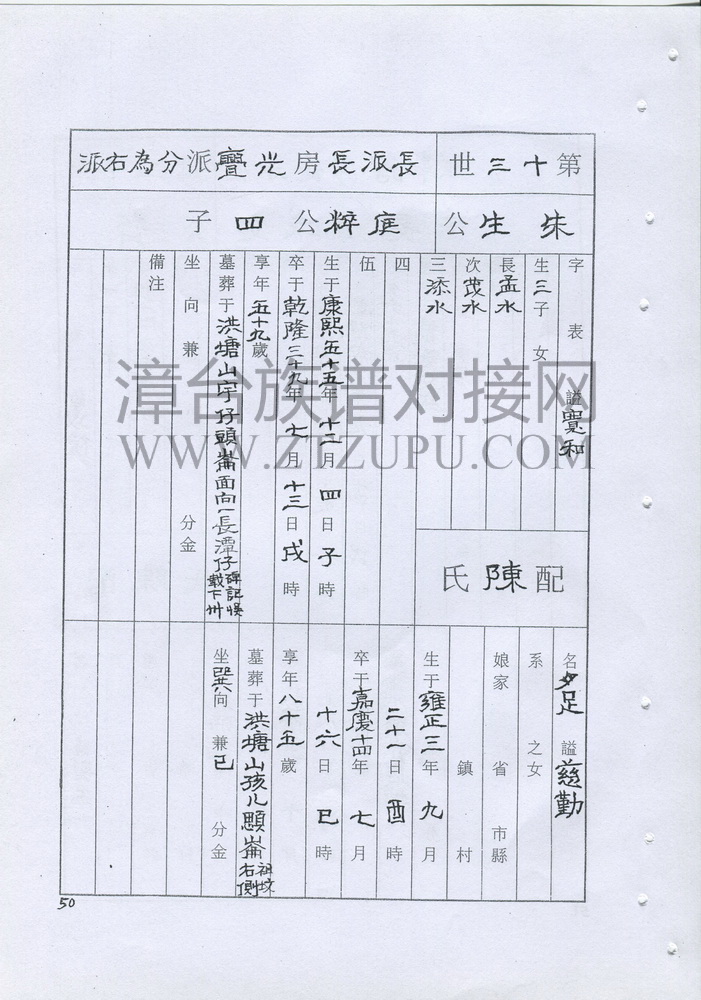 第十三世
長派長房光亹派分為右派
朱生公
庭粹公四子
字表 謚寬和
生三子女
長孟水
次茂水
三添水
四
伍
生于康熙五十五年十二月四日子時
卒于乾隆三十九年七月十三日戌時
享年五十九歲
墓葬于洪塘山宇仔頭崙面向長潭仔碑記悞載下卅
坐向兼分金
備注
配陳氏
名夕足謚慈勤
系之女
娘家省市縣
鎮村
生于雍正三年九月
二十一日酉時
卒于嘉慶十四年七月
十六日巳時
享年八十五歲
墓葬于洪塘山孩儿顋崙祖坟右側
坐巽向兼巳分金
50
漳台族谱对接网
WWW.ZTZUPU.COM